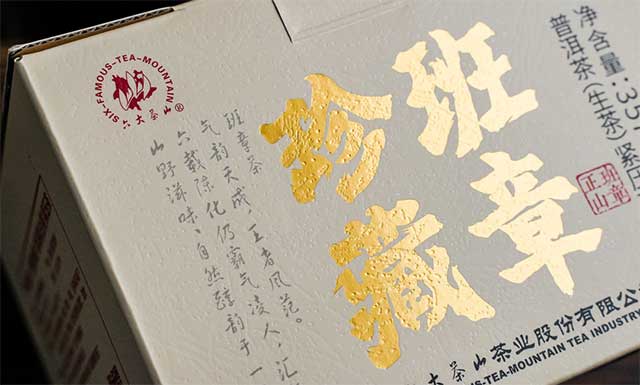 SIX-FAMOUS-TEA-MOUNTAIN
六大茶山®
净含量:3
普洱茶(生茶)紧
班章
正山
班章
珍藏
班章茶
气韵天成,王者风范。
六载陈化仍霸气凌人,汇
山野滋味、自然醇韵于一
大茶山茶业股份有限公
S-TEA-MOUNTAIN TEA INDUSTRY